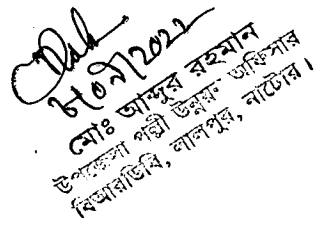 মোঃ আব্দুর রহমান
উপজেলা পল্লী উন্নয়ন অফিসার
বিআরডিবি, লালপুর, নাটোর।